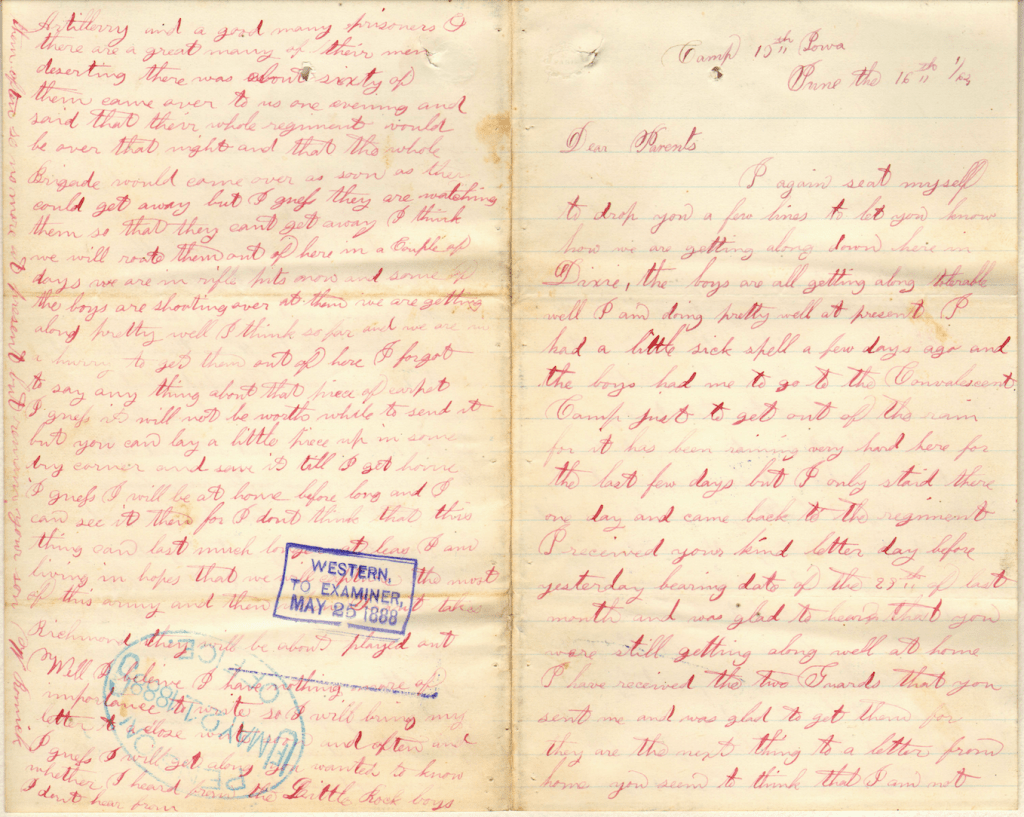 Camp 15th Iowa
June the 16th /64
Dear Parents
I again seat myself
to drop you a few lines to let you know
how we are getting along down here in
Dixie, the boys are all getting along tolerable
well I am doing pretty well at present I
had a little sick spell a few days ago and
the boys had me to go to the Convalescent
Camp just to get out of the rain
for it has been raining very hard here for
the last few days but I only staid there
one day and came back to the regiment
I received your kind letter day before
yesterday bearing date of the 29th of last
month and was glad to hear that you
were still getting along well at home
I have received the two Guards that you
sent me and was glad to get them for
they are the next thing to a letter from
home you seem to think that I am not
Artillerry and a good many prisoners I
there are a great many of their men
deserting there was about sixty of
them came over to us one evening and
said that their whole regiment would
be over that night and that the whole
Brigade would come over as soon as they
could get away but I guess they are watching
them so that they cant get away I think
we will roote them out of here in a Couple of
days we are in rifle pits now and some of
the boys are shooting over at them we are getting
along pretty well I think so far and we are in
a hurry to get them out of here I forgot
to say any thing about that piece of carpet
I guess it will not be worth while to send it
but you can lay a little piece up in some
dry corner and save it tell I get home
I guess I will be at home before long and I
can see it then for I dont think that this
thing can last much longer at leas I am
living in hopes that we will the most
of this army and then takes
Richmond they will be about played out
Well I believe I have nothing more of
importance to write so I will bring my
letter to a close write soon and often and
I guess I will get along you wanted to know
whether I heard from the Little Rock boys
I dont hear from
them often so no more at present but remain your son
WESTERN,
TO EXAMINER,
MAY 25 1888
MAY 21 1888